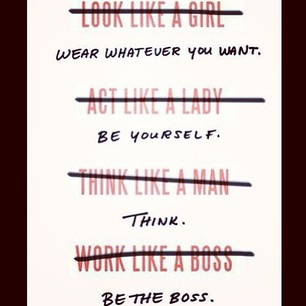 LOOK LIKE A GIRL
WEAR WHATEVER YOU WANT.
ACT LIKE A LADY
BE YOURSELF.
THINK LIKE A MAN
THINK.
WORK LIKE A BOSS
BE THE BOSS.